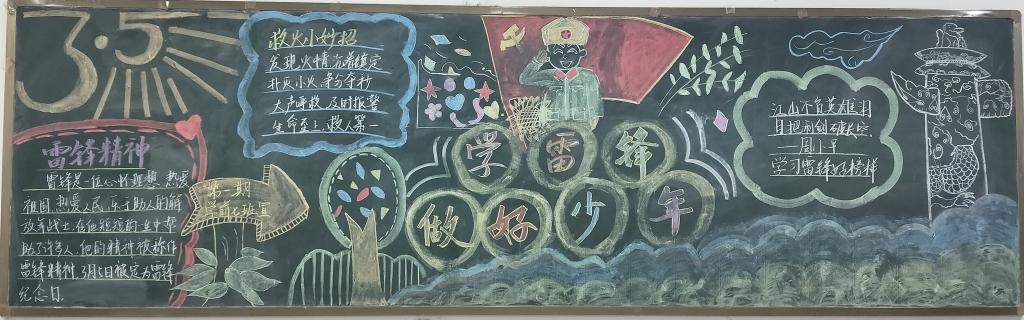 3.5
雷锋精神
雷锋是一位心怀理想、热爱
祖国、热爱人民、乐于助人的解
放军战士,在他短短的一生中帮
助了许多人,他的精神被称作
雷锋精神,3月5日被定为雷锋
纪念日。
第一期
班宣
救火小妙招
发现火情 沉着镇定
扑灭小火 求分夺秒
大声呼救 及时报警
生命至上 救人第一
学雷锋
做好少年
江山不负英雄泪
且把利剑破长空
学习雷锋好榜样